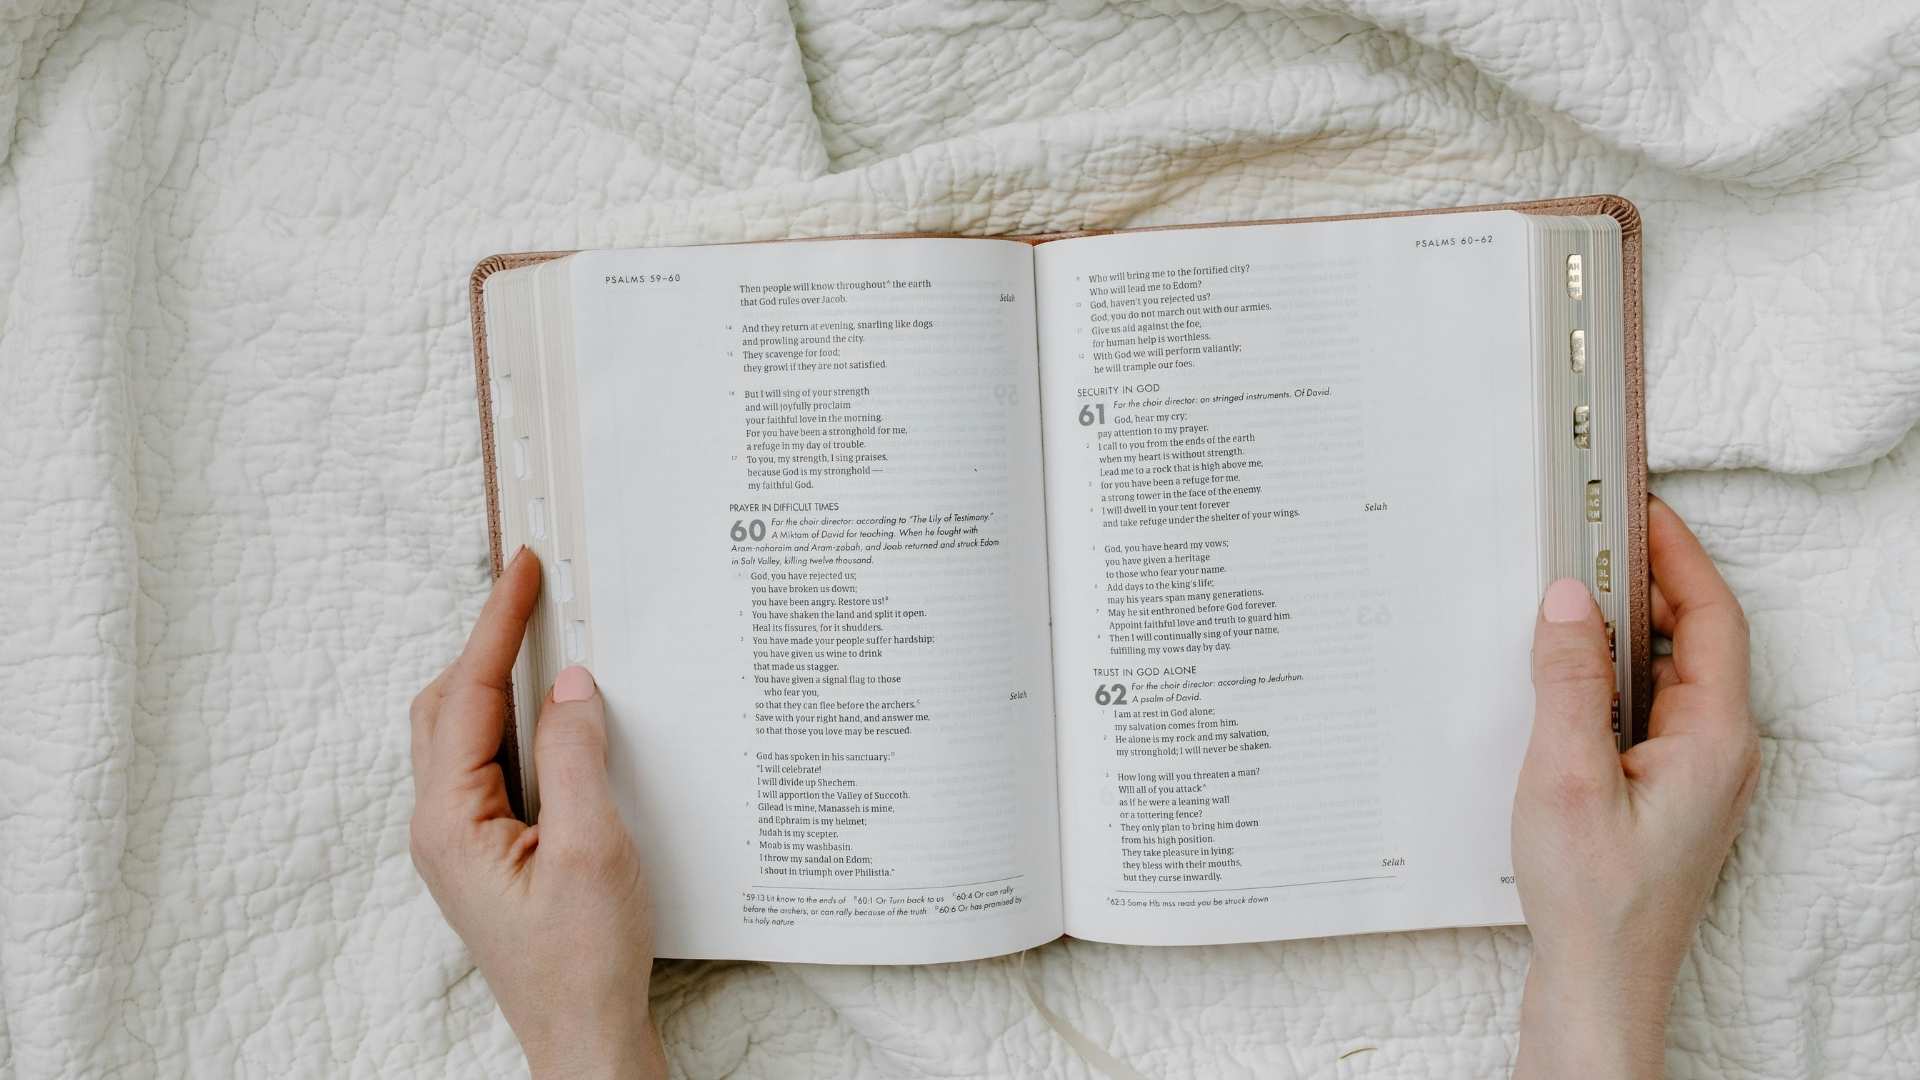 PSALMS 59–60
Then people will know throughoutᴬ the earth
that God rules over Jacob. Selah
14 And they return at evening, snarling like dogs
and prowling around the city.
15 They scavenge for food;
they growl if they are not satisfied.
16 But I will sing of your strength
and will joyfully proclaim
your faithful love in the morning.
For you have been a stronghold for me,
a refuge in my day of trouble.
17 To you, my strength, I sing praises,
because God is my stronghold —
my faithful God.
PRAYER IN DIFFICULT TIMES
60 For the choir director: according to "The Lily of Testimony."
A Miktam of David for teaching. When he fought with
Aram-naharaim and Aram-zobah, and Joab returned and struck Edom
in Salt Valley, killing twelve thousand.
1 God, you have rejected us;
you have broken us down;
you have been angry. Restore us!ᴮ
2 You have shaken the land and split it open.
Heal its fissures, for it shudders.
3 You have made your people suffer hardship;
you have given us wine to drink
that made us stagger.
4 You have given a signal flag to those
who fear you,
so that they can flee before the archers.ᶜ Selah
5 Save with your right hand, and answer me,
so that those you love may be rescued.
6 God has spoken in his sanctuary:ᴰ
"I will celebrate!
I will divide up Shechem.
I will apportion the Valley of Succoth.
7 Gilead is mine, Manasseh is mine,
and Ephraim is my helmet;
Judah is my scepter.
8 Moab is my washbasin.
I throw my sandal on Edom;
I shout in triumph over Philistia."
ᴬ59:13 Lit know to the ends of ᴮ60:1 Or Turn back to us ᶜ60:4 Or can rally
before the archers, or can rally because of the truth ᴰ60:6 Or has promised by
his holy nature
PSALMS 60–62
9 Who will bring me to the fortified city?
Who will lead me to Edom?
10 God, haven't you rejected us?
God, you do not march out with our armies.
11 Give us aid against the foe,
for human help is worthless.
12 With God we will perform valiantly;
he will trample our foes.
SECURITY IN GOD
61 For the choir director: on stringed instruments. Of David.
God, hear my cry;
pay attention to my prayer.
2 I call to you from the ends of the earth
when my heart is without strength.
Lead me to a rock that is high above me,
3 for you have been a refuge for me,
a strong tower in the face of the enemy.
4 I will dwell in your tent forever
and take refuge under the shelter of your wings. Selah
5 God, you have heard my vows;
you have given a heritage
to those who fear your name.
6 Add days to the king's life;
may his years span many generations.
7 May he sit enthroned before God forever.
Appoint faithful love and truth to guard him.
8 Then I will continually sing of your name,
fulfilling my vows day by day.
TRUST IN GOD ALONE
62 For the choir director: according to Jeduthun.
A psalm of David.
1 I am at rest in God alone;
my salvation comes from him.
2 He alone is my rock and my salvation,
my stronghold; I will never be shaken.
3 How long will you threaten a man?
Will all of you attackᴬ
as if he were a leaning wall
or a tottering fence?
4 They only plan to bring him down
from his high position.
They take pleasure in lying;
they bless with their mouths,
but they curse inwardly. Selah
903
ᴬ62:3 Some Hb mss read you be struck down